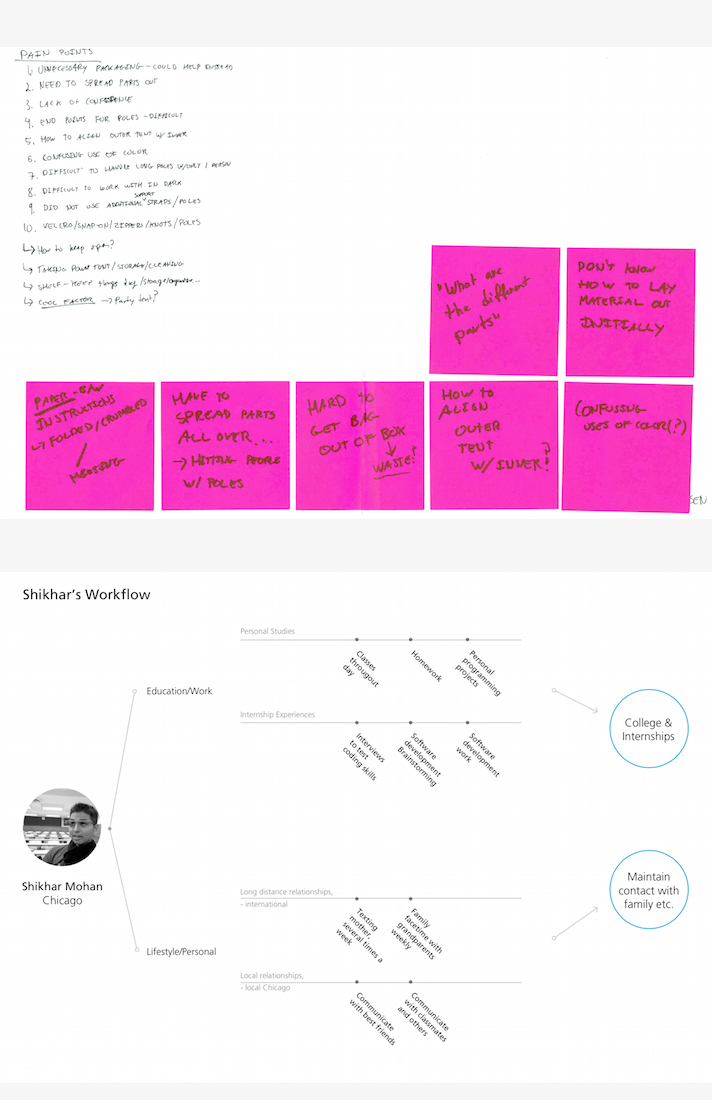 PAIN POINTS
1. UNNECESSARY PACKAGING - COULD HELP INSTEAD
2. NEED TO SPREAD PARTS OUT
3. LACK OF CONFIDENCE
4. END POINTS FOR POLES - DIFFICULT
5. HOW TO ALIGN OUTER TENT W/ INNER
6. CONFUSING USE OF COLOR
7. DIFFICULT TO HANDLE LONG POLES W/ ONLY 1 PERSON
8. DIFFICULT TO WORK WITH IN DARK
9. DID NOT USE ADDITIONAL SUPPORT STRAPS/POLES
10. VELCRO/SNAP-ON/ZIPPERS/KNOTS/POLES
↳ How to keep open?
↳ TAKING DOWN TENT/STORAGE/CLEANING
↳ SHELF - KEEP things dry/storage/organize...
↳ COOL FACTOR → Party tent?
"What are
the different
parts"
DON'T KNOW
HOW TO LAY
MATERIAL OUT
INITIALLY
PAPER
INSTRUCTIONS
↳ FOLDED/CRUMBLED
/
MISSING
HAVE TO
SPREAD PARTS
ALL OVER...
→ HITTING PEOPLE
W/ POLES
HARD TO
GET BAG
OUT OF BOX
↓
WASTE?
HOW TO
ALIGN
OUTER
TENT
W/ INNER?
CONFUSSING
USES OF COLOR(?)
Shikhar's Workflow
Personal Studies
Classes
througout
day
Homework
Personal
programming
projects
Education/Work
Internship Experiences
Interviews
to test
coding skills
Software
development
Brainstorming
Software
development
work
College &
Internships
Shikhar Mohan
Chicago
Maintain
contact with
family etc.
Long distance relationships,
- international
Texting
mother,
several times a
week
Family
facetime with
grandparents
weekly
Lifestyle/Personal
Local relationships,
- local Chicago
Communicate
with best friends
Communicate
with classmates
and others